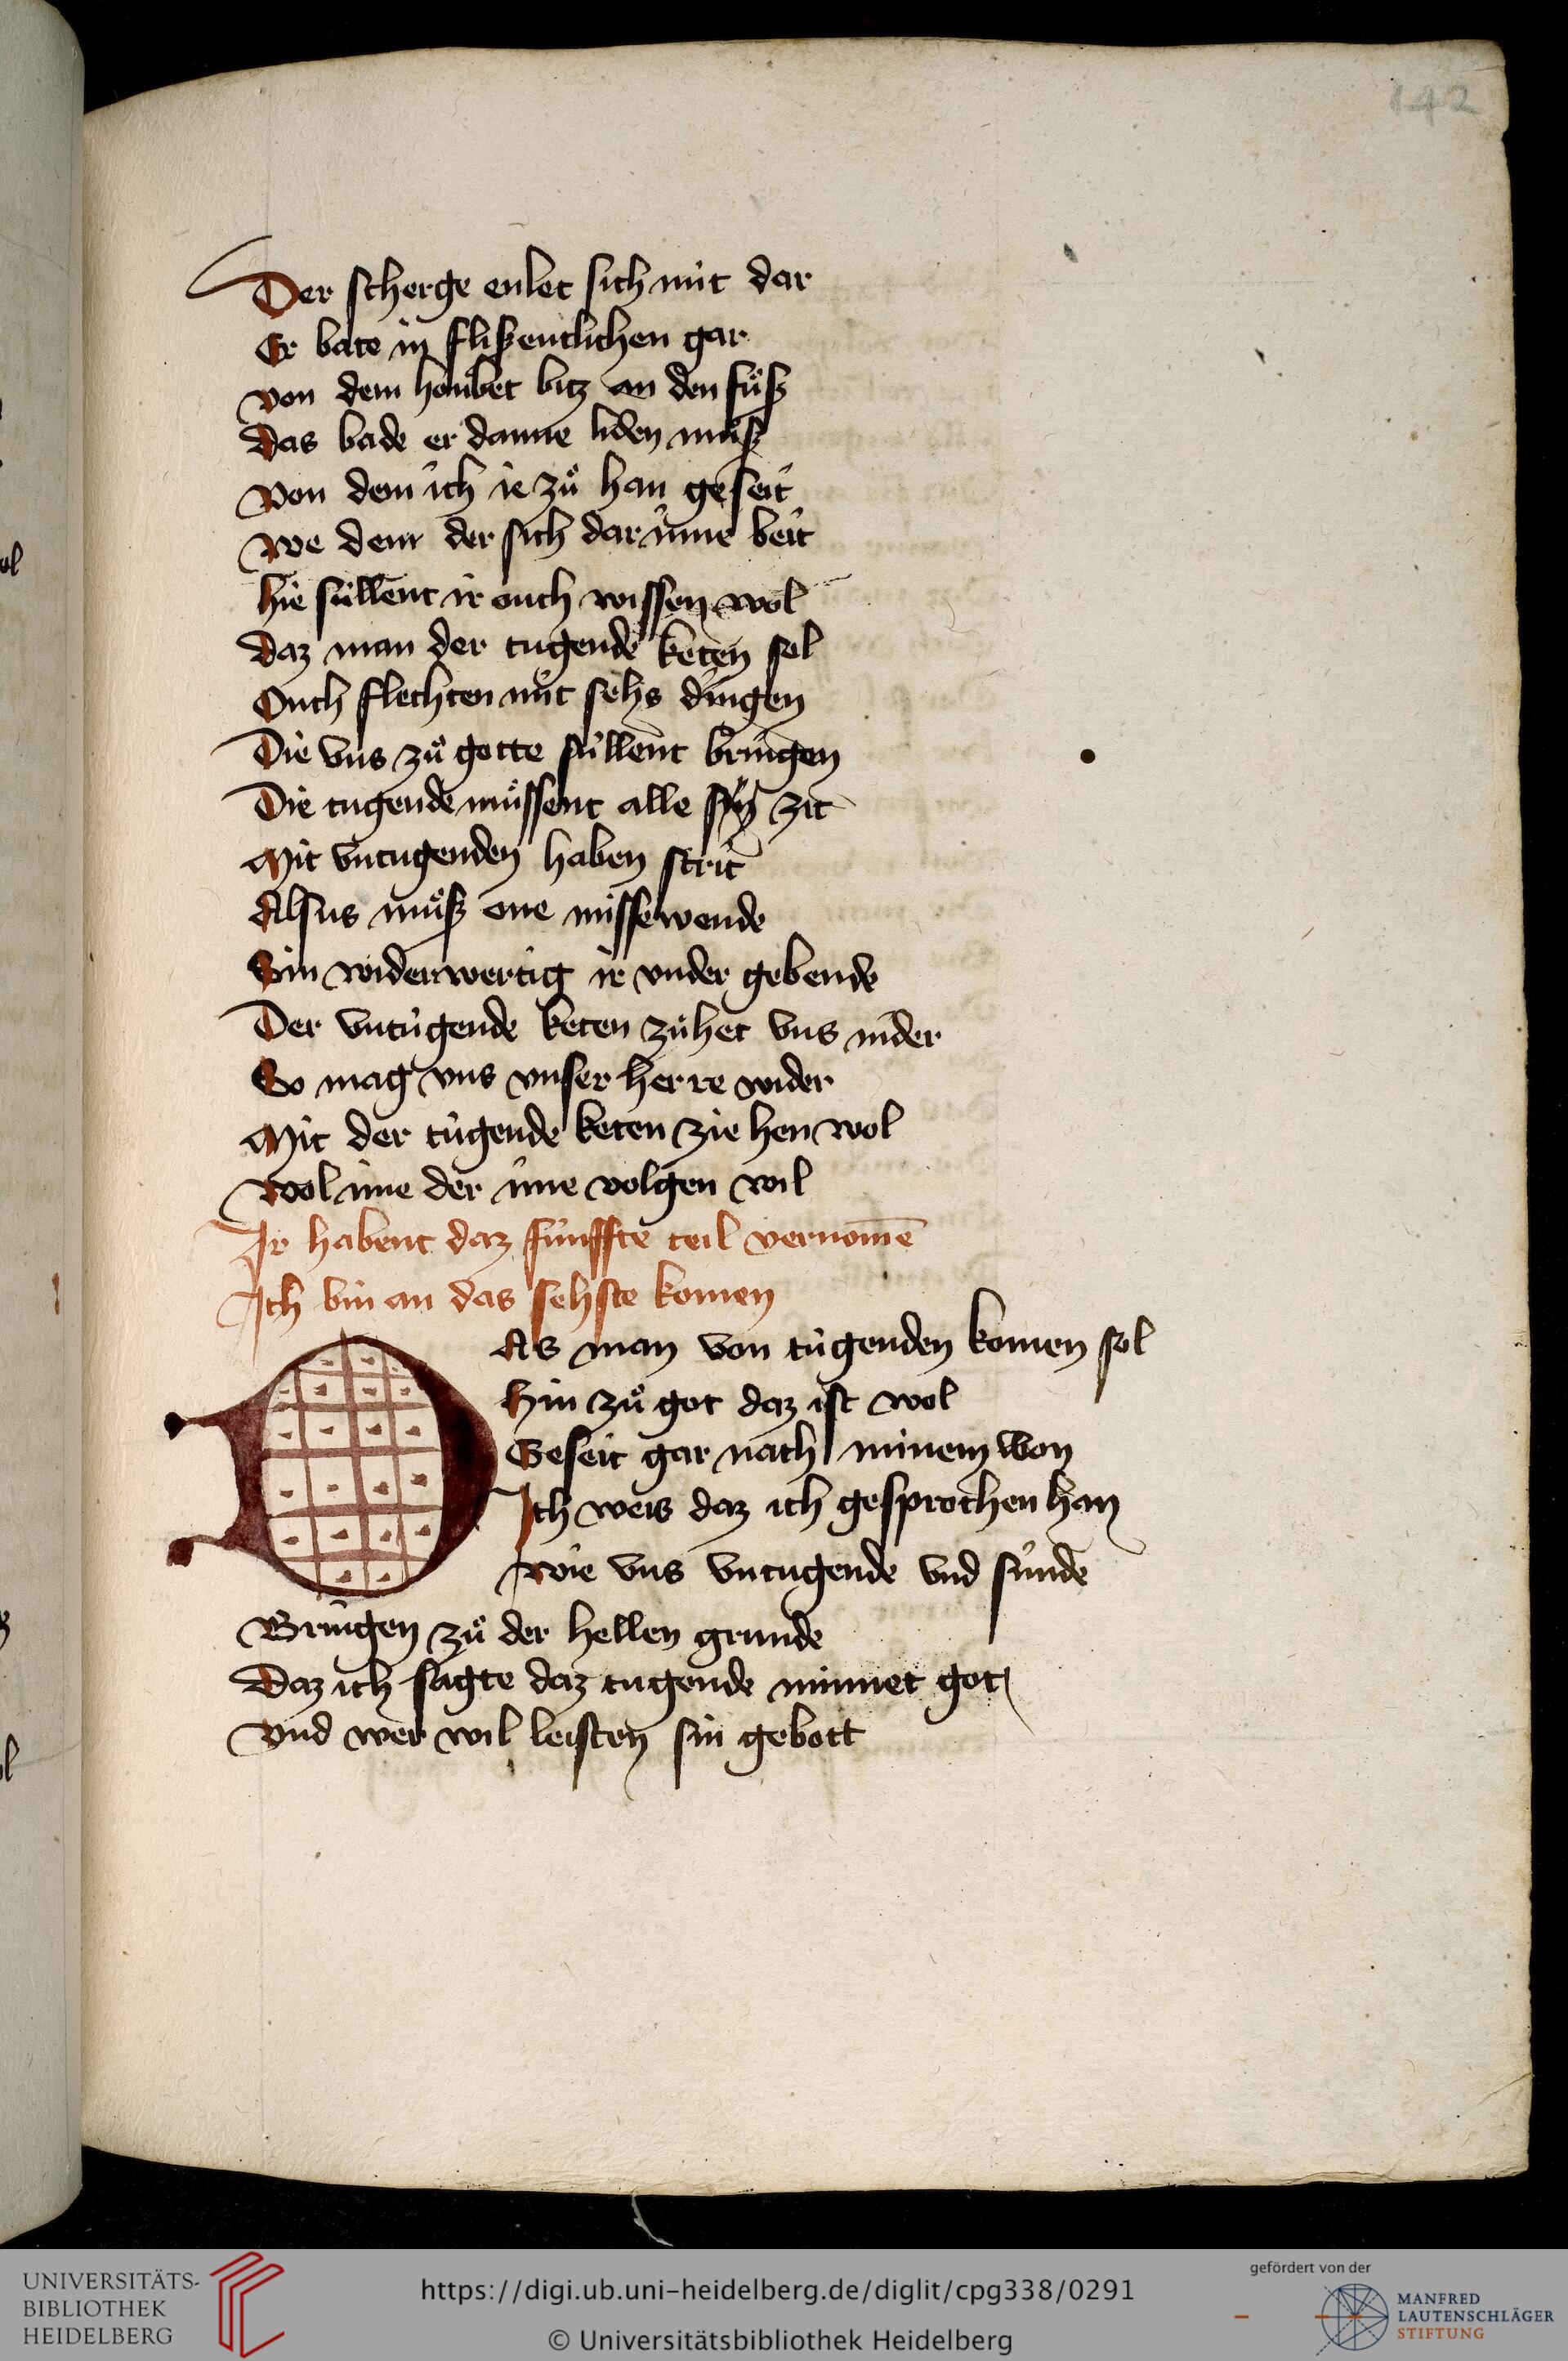 142
Der scherge enlet sich nút dar
Er bate in fliszentlichen gar
von dem houbet bitz an den fuͦsz
Das bade er danne liden muͦsz
Von dem ich ie zuͦ han geseit
We dem der sich dar inne beit
hie súllent ir ouch wissen wol
Daz man der tugende keten sol
Ouch flechten mit sehs dingen
Die vns zuͦ gotte súllent bringen
Die tugende muͤssent alle zit
Mit vntugenden haben strit
Alsus muͦsz one missewende
Sin widerwertig ir vnder gebende
Der vntugende keten zúhet vns nider
So mag vns vnser herre wider
Mit der tugende keten zie hen wol
Wol ime der ime volgen wil
Ir habent daz fúnffte teil vernom̄e
Ich bin an das sehste komen
DAs man von tugenden komen sol
Hin zuͦ got daz ist wol
Geseit gar nach minem won
Ich weis daz ich gesprochen han
Wie vns vntugende vnd súnde
Bringen zuͦ der hellen grunde
Daz ich sagte daz tugende minnet got
Vnd wer wil leisten sin gebott
UNIVERSITÄTS-
BIBLIOTHEK
HEIDELBERG
https://digi.ub.uni-heidelberg.de/diglit/cpg338/0291
© Universitätsbibliothek Heidelberg
gefördert von der
MANFRED
LAUTENSCHLÄGER
STIFTUNG